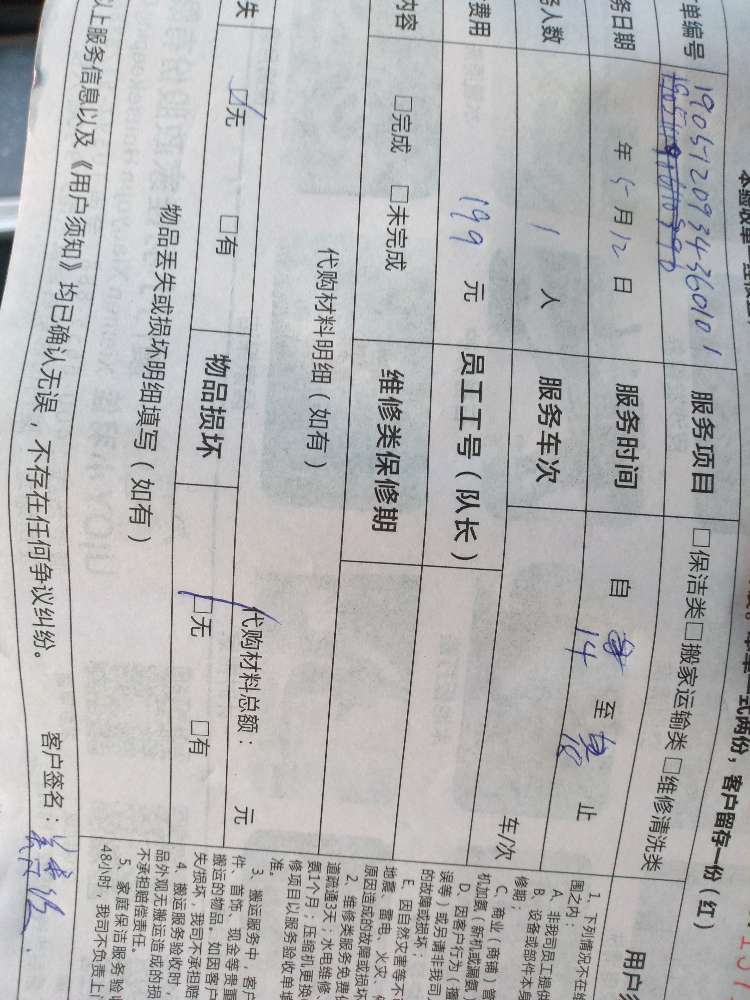 本验收单一式两份，客户留存一份（红）
单编号 1905120934360101 服务项目 □保洁类□搬家运输类□维修清洗类
务日期 年5月12日 服务时间 自 14 至 18 止
务人数 1 人 服务车次 车/次
费用 199 元 员工工号（队长）
内容 □完成 □未完成 维修类保修期
代购材料明细（如有） 代购材料总额： 元
失 □无 □有 物品损坏 □无 □有
物品丢失或损坏明细填写（如有）
以上服务信息以及《用户须知》均已确认无误，不存在任何争议纠纷。 客户签名：
用户
1、下列情况不在维
围之内：
A、非我司员工提供
B、设备或部件本身
修期；
C、商业（商铺）管
机加氨（新机或漏氨）
D、因客户行为（撞
误等）或另请非我司人
的故障或损坏；
E、因自然灾害等不可
地震、雷电、火灾、
原因造成的故障或损坏
2、维修类服务免费保
道疏通3天；水电维修、
氨1个月；压缩机更换
修项目以服务验收单填
准。
3、搬运服务中，客户
件、首饰、现金等贵重
搬运的物品。如因客户
失/损坏，我司不承担赔
4、搬运服务验收时，
品外观无搬运造成的损
不承担赔偿责任。
5、家庭保洁服务验收
48小时，我司不负责上门